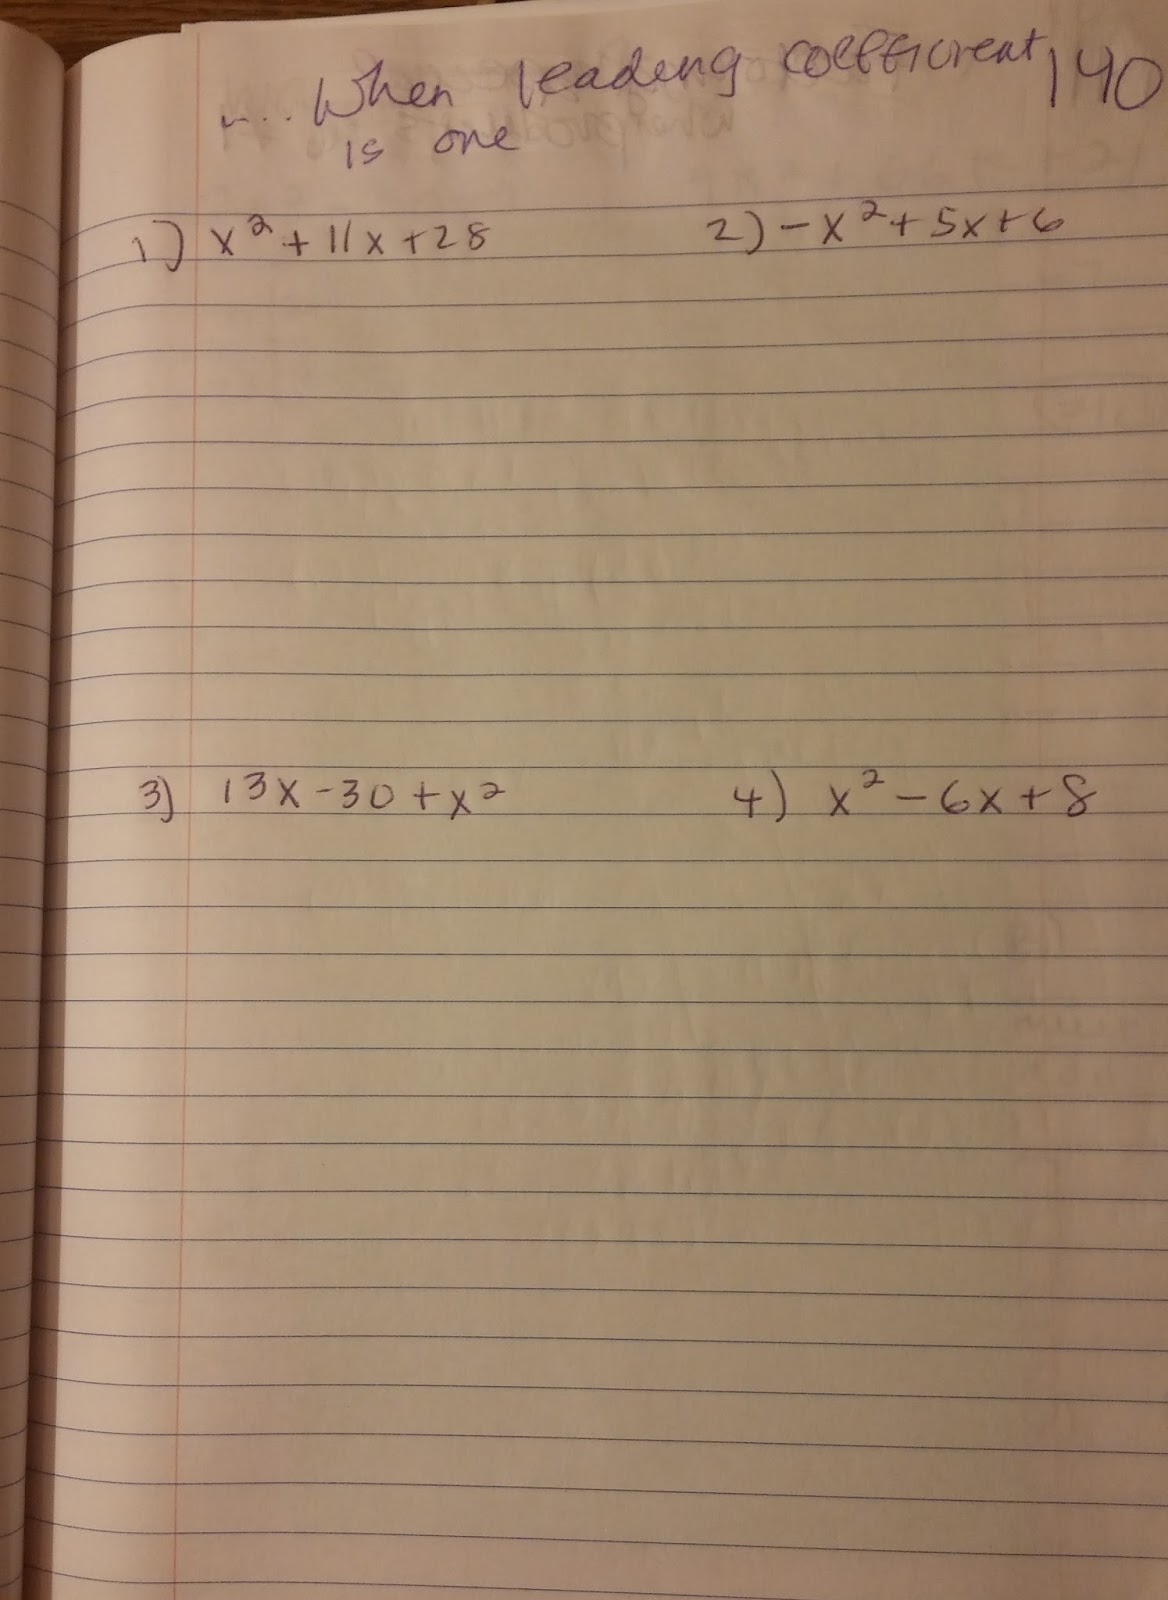 ... When leading coefficient 140
is one
1) x² + 11x + 28 2) -x² + 5x + 6
3) 13x - 30 + x² 4) x² - 6x + 8